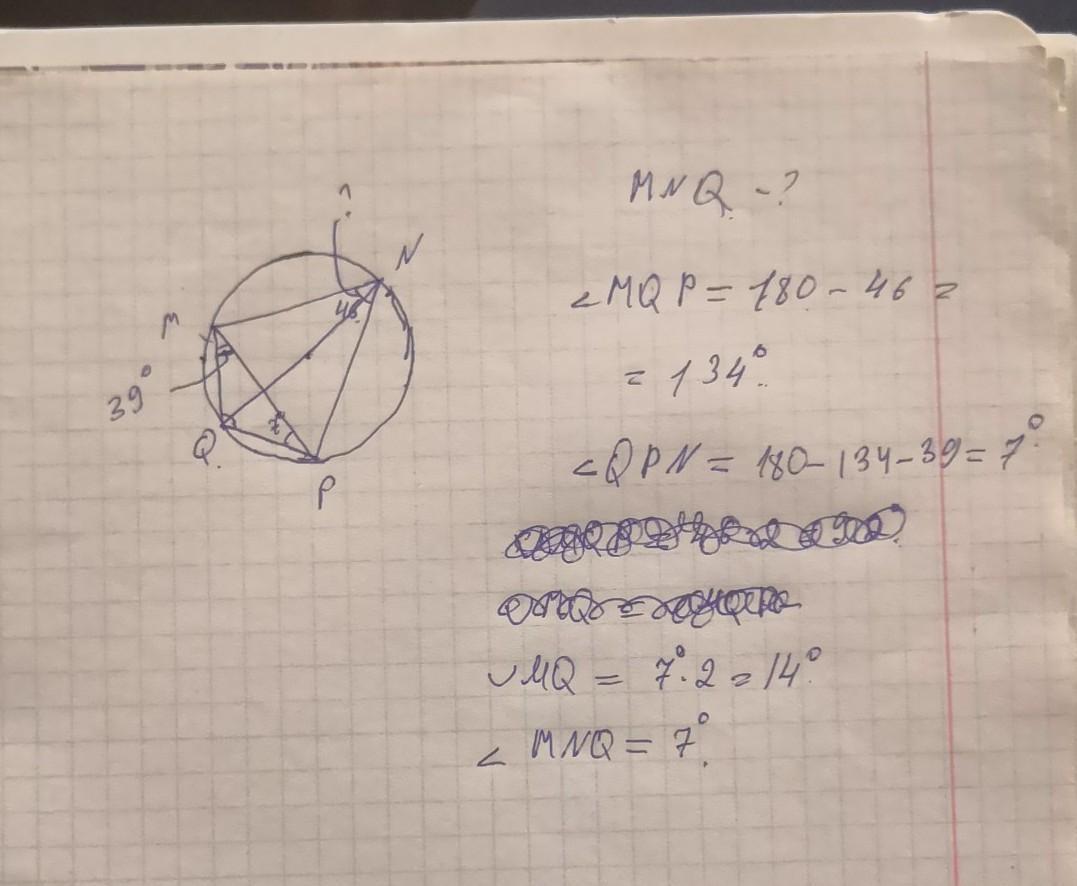 MNQ - ?
?
N
46
M
39°
7°
Q
P
∠MQP = 180 - 46 =
= 134°.
∠QPN = 180 - 134 - 39 = 7°
◡MQ = 7°·2 = 14°
∠MNQ = 7°.